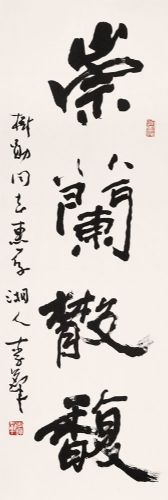 崇蘭馛馥
樹勛同志惠存 湘人李鐸